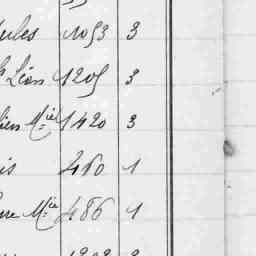 ules 1053 3
Léon 1205 3
lien Mie 1420 3
is 460 1
rre Mie 486 1